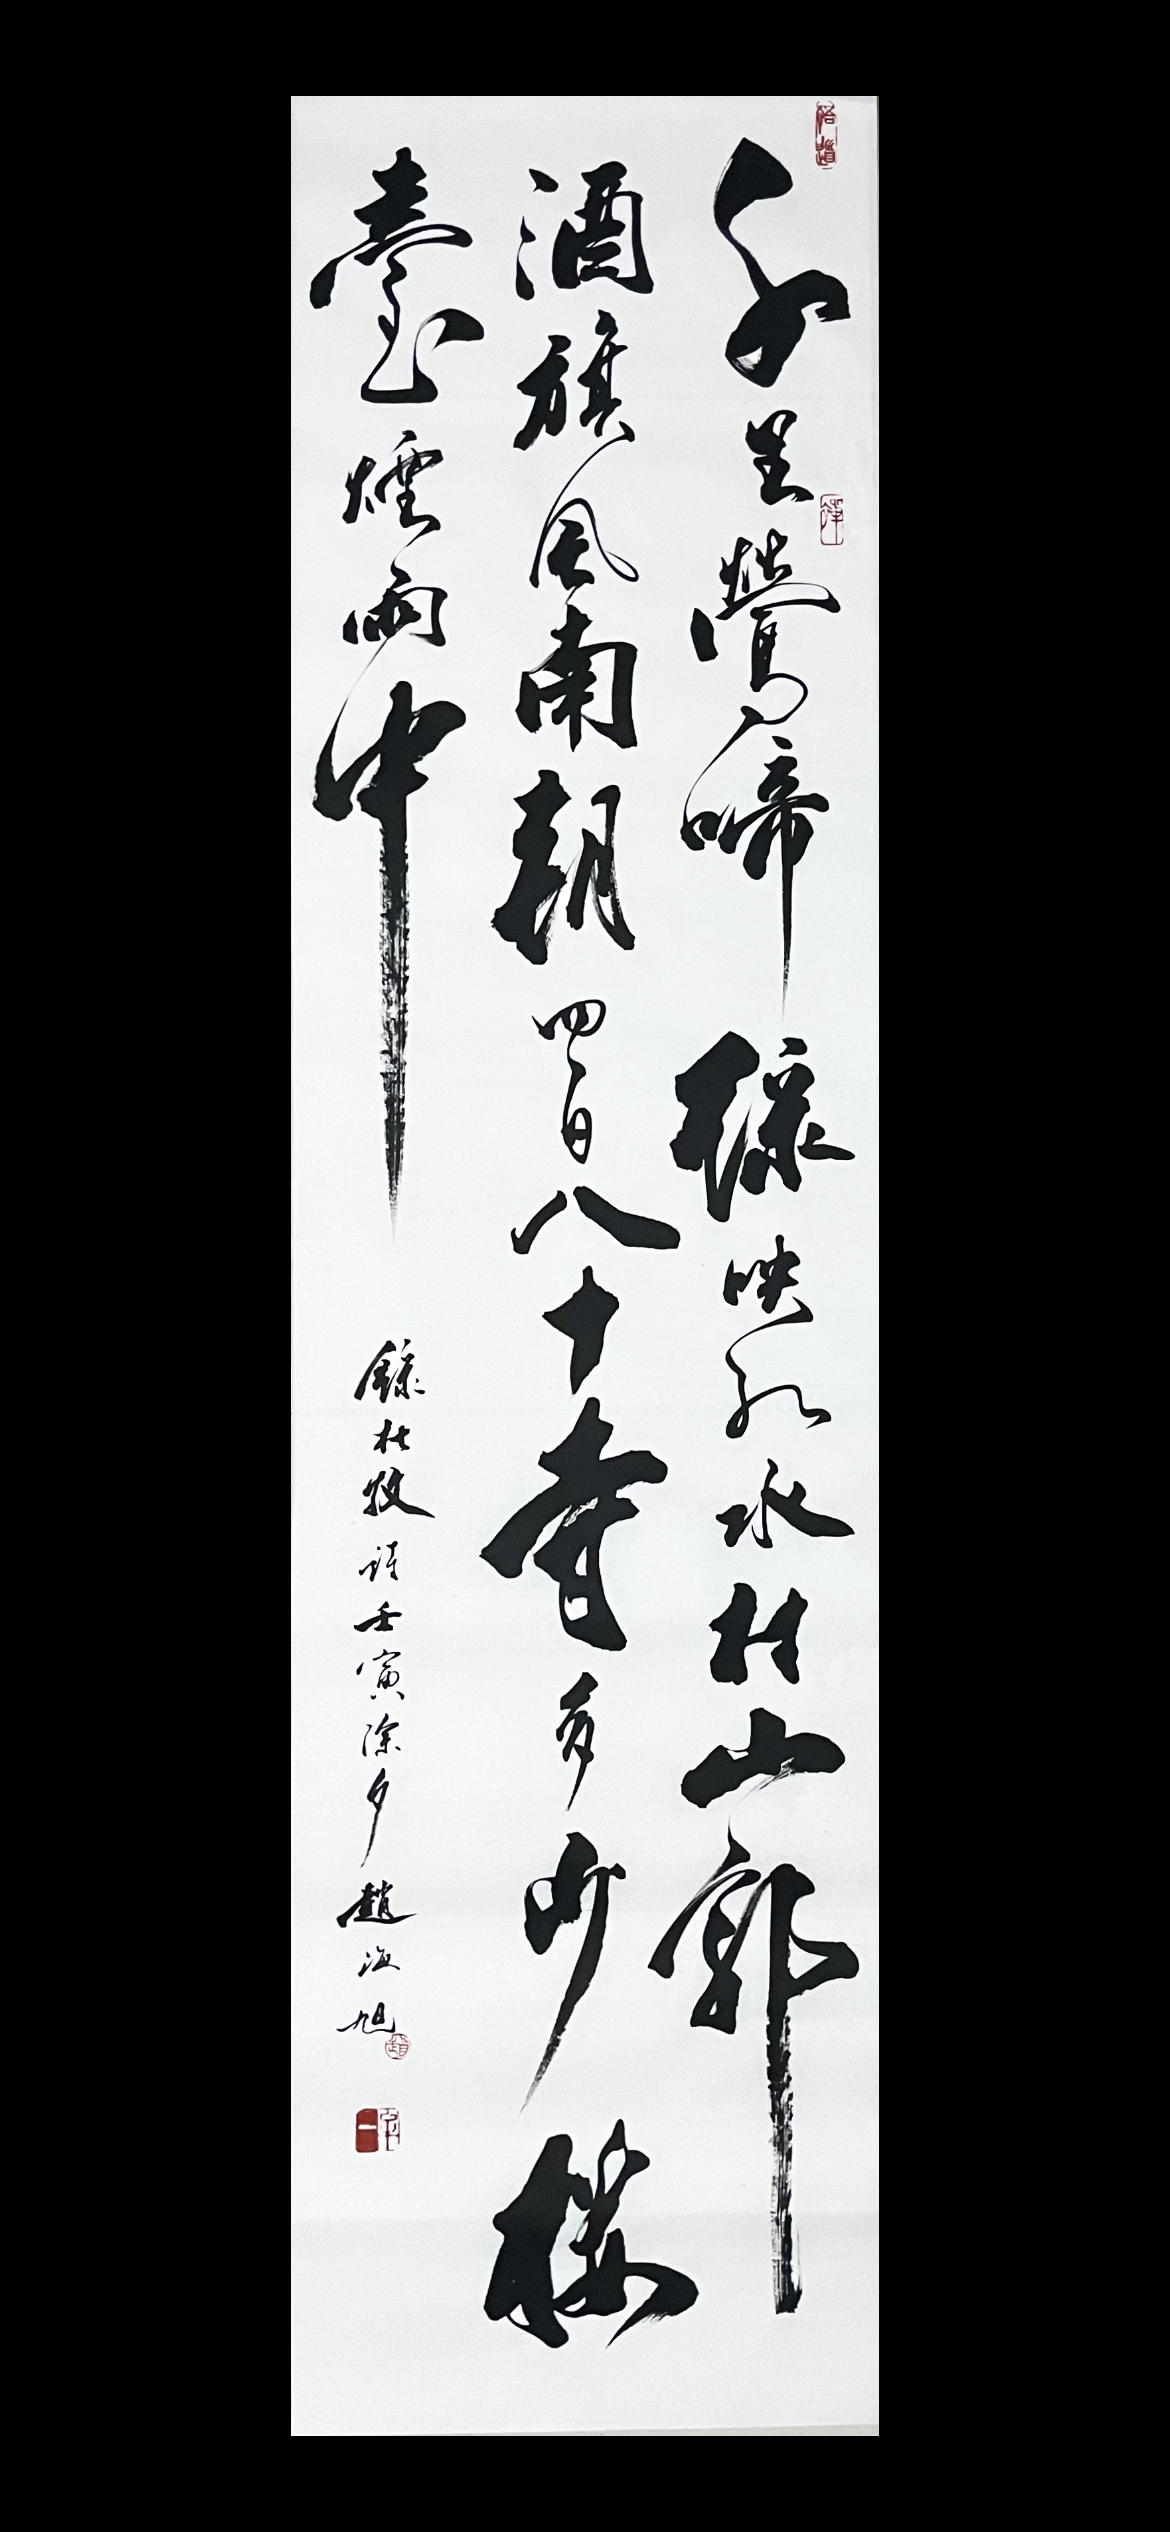 千里鶯啼緑映紅水村山郭
酒旗風南朝四百八十寺多少樓
臺煙雨中
錄杜牧詩壬寅除夕趙海旭